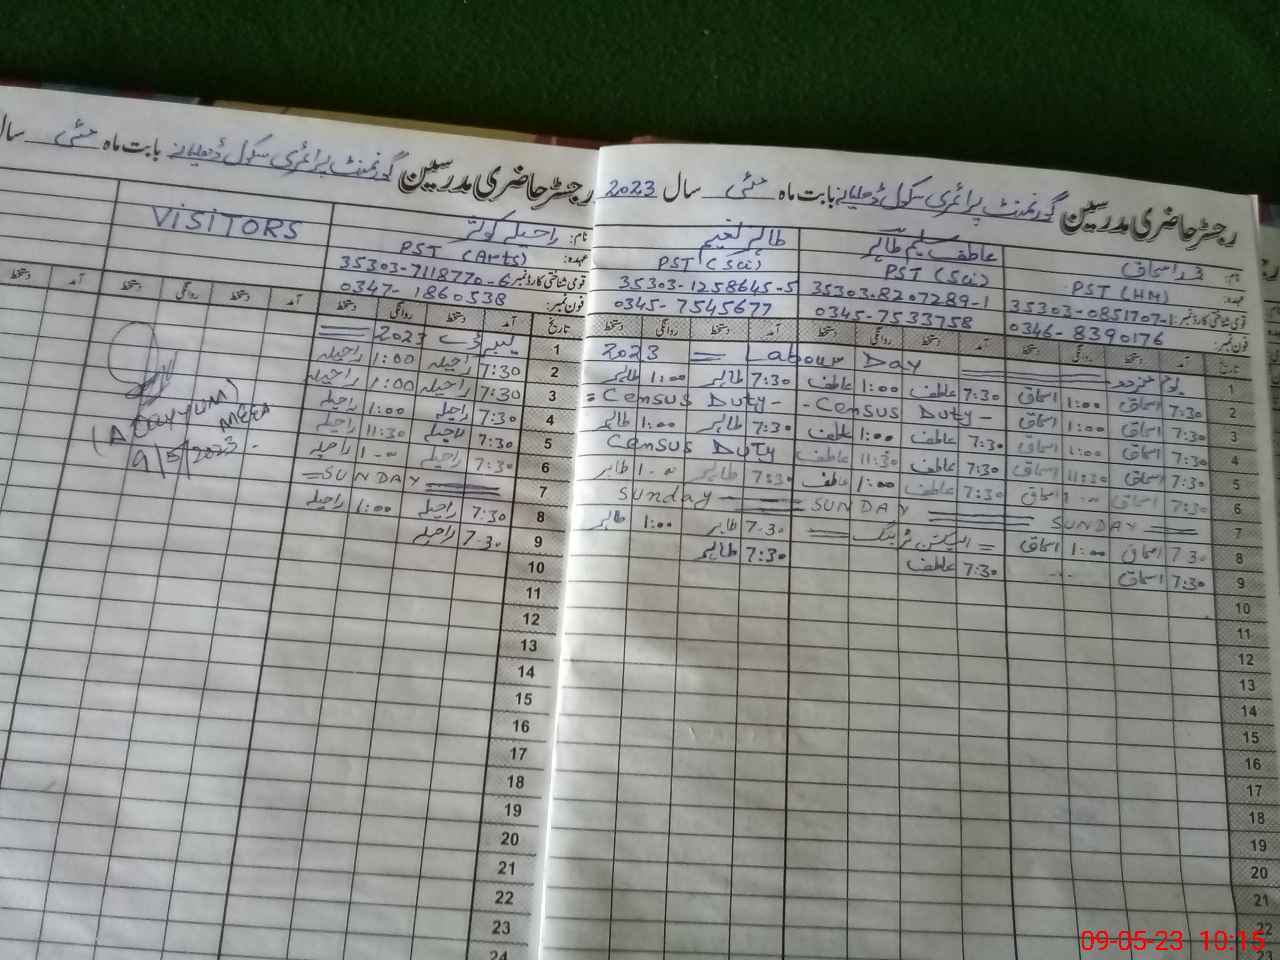 رجسٹر حاضری مدرسین گورنمنٹ پرائمری سکول ڈھلیانہ بابت ماہ مئی سال 2023
نام: اسحاق
عاطف سلیم طاہر
طاہر نعیم
عہدہ: PST (HM)
PST (Sci)
PST (Sci)
قومی شناختی کارڈ نمبر: 35303-0851707-1
35303-8207289-1
35303-1258645-5
فون نمبر: 0346-8390176
0345-7533758
0345-7545677
تاریخ آمد دستخط روانگی دستخط آمد دستخط روانگی دستخط آمد دستخط روانگی دستخط
1 یوم مزدور Labour Day 2023
2 7:30 اسحاق 1:00 اسحاق 7:30 عاطف 1:00 عاطف 7:30 طاہر 1:00 طاہر
3 7:30 اسحاق 1:00 اسحاق - Census Duty - = Census Duty -
4 7:30 اسحاق 1:00 اسحاق 7:30 عاطف 1:00 عاطف 7:30 طاہر 1:00 طاہر
5 7:30 اسحاق 11:30 اسحاق 7:30 عاطف 11:30 عاطف Census Duty
6 7:30 اسحاق 1:00 اسحاق 7:30 عاطف 1:00 عاطف 7:30 طاہر 1:00 طاہر
7 SUNDAY SUNDAY Sunday
8 7:30 اسحاق 1:00 اسحاق = الیکشن ٹریننگ = 7:30 طاہر 1:00 طاہر
9 7:30 اسحاق 7:30 عاطف 7:30 طاہر
10
11
12
13
14
15
16
17
18
19
20
21
22
23
رجسٹر حاضری مدرسین گورنمنٹ پرائمری سکول ڈھلیانہ بابت ماہ مئی سال
نام: راحیلہ کوثر
VISITORS
عہدہ: PST (Arts)
قومی شناختی کارڈ نمبر: 35303-7118770-6
فون نمبر: 0347-1860538
تاریخ آمد دستخط روانگی دستخط آمد دستخط روانگی دستخط آمد دستخط
1 لیبر ڈے 2023
2 7:30 راحیلہ 1:00 راحیلہ
3 7:30 راحیلہ 1:00 راحیلہ
4 7:30 راحیلہ 1:00 راحیلہ
5 7:30 راحیلہ 11:30 راحیلہ
6 7:30 راحیلہ 1:00 راحیلہ
7 = SUNDAY
8 7:30 راحیلہ 1:00 راحیلہ
9 7:30 راحیلہ
10
11
12
13
14
15
16
17
18
19
20
21
22
23
24
(A Qayyum)
MEA
9/5/2023
09-05-23 10:15